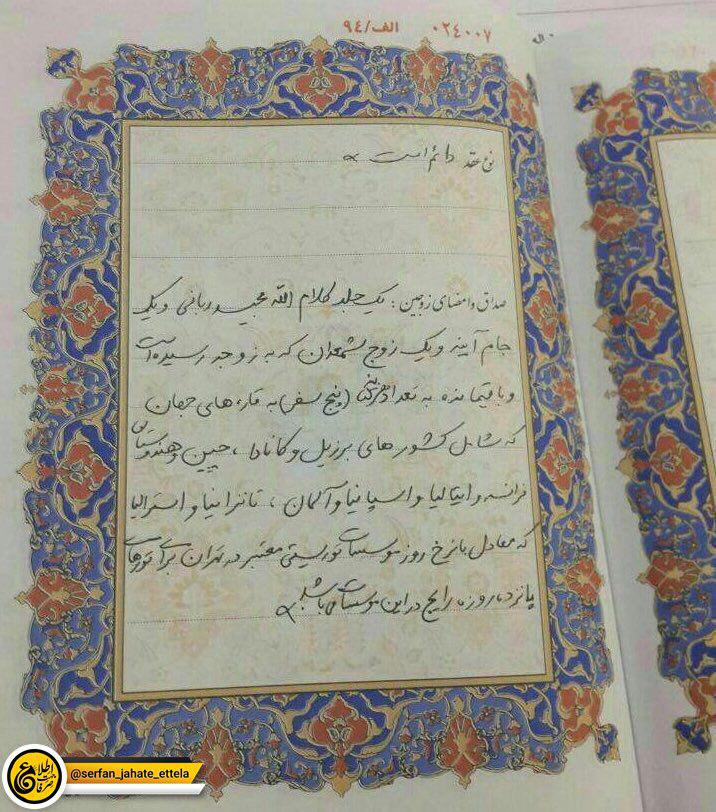 ۰۲۴۰۰۷ الف/۹۴
نوع عقد دائم است
صداق و امضای زوجین: یک جلد کلام الله مجید ربانی و یک
جام آینه و یک زوج شمعدان که به زوجه رسیده است
و باقیمانده به تعداد (پنج سفر) به قاره های جهان
که شامل کشور های برزیل و کانادا، چین و هندوستان
فرانسه و ایتالیا و اسپانیا و آلمان، تانزانیا و استرالیا
که معادل با نرخ روز موسسات توریستی معتبر در تهران برای تورهای
پانزده روزه رایج در این موسسات می باشد.
اطلاع
صرفا جهت
@serfan_jahate_ettela